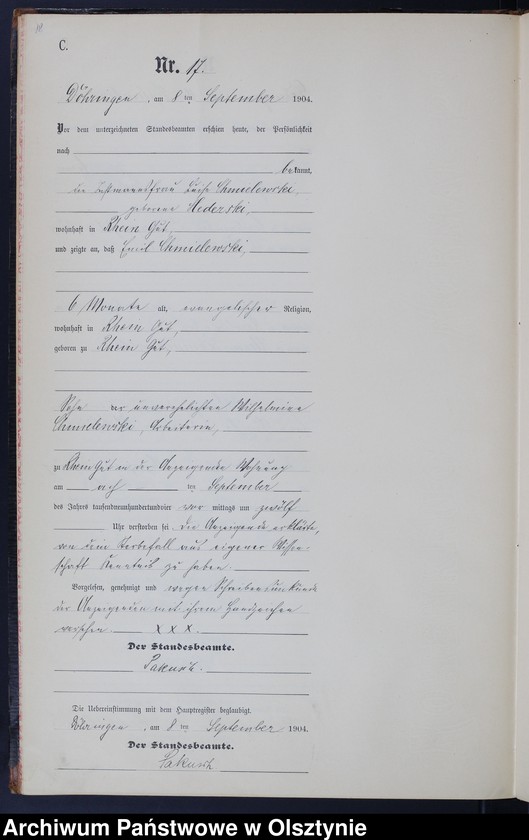 C.
Nr. 17.
Döhringen, am 8ten September 1904.
Vor dem unterzeichneten Standesbeamten erschien heute, der Persönlichkeit
nach
bekannt,
die Luise Chmielewski,
geborene
wohnhaft in Rhein Gut,
und zeigte an, daß Emil Chmielewski,
6 Monate alt, evangelischer Religion,
wohnhaft in Rhein Gut,
geboren zu Rhein Gut,
Sohn der unverehelichten Wilhelmine
Chmielewski, Arbeiterin,
zu Rhein Gut in der Wohnung
am acht ten September
des Jahres tausendneunhundertundvier vor mittags um zwölf
Uhr verstorben sei. Die Anzeigende erklärte,
von dem Sterbefall aus eigener Wissen-
schaft Kenntnis zu haben.
Vorgelesen, genehmigt und wegen Schreibensunkunde
der Anzeigenden mit ihrem Handzeichen
versehen. X X X.
Der Standesbeamte.
Die Uebereinstimmung mit dem Hauptregister beglaubigt.
Döhringen, am 8ten September 1904.
Der Standesbeamte.
Archiwum Państwowe w Olsztynie